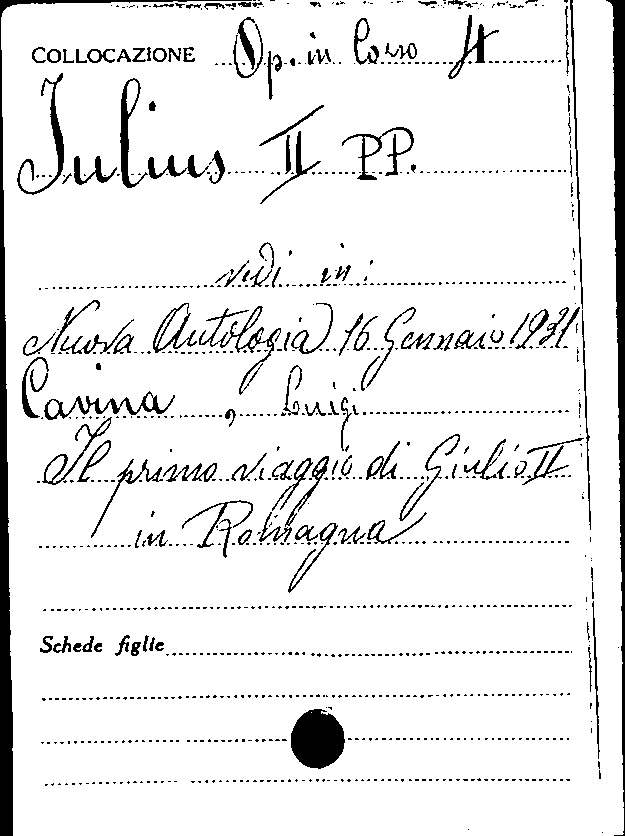 COLLOCAZIONE Op. in Corso
Iulius II PP.
vedi in:
Nuova Antologia 16 Gennaio 1931
Cavina, Luigi
Il primo viaggio di Giulio II
in Romagna
Schede figlie